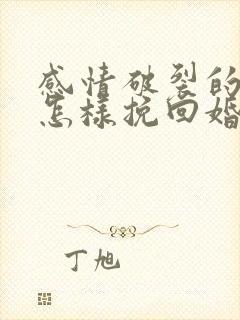 感情破裂的
怎样挽回婚
丁旭